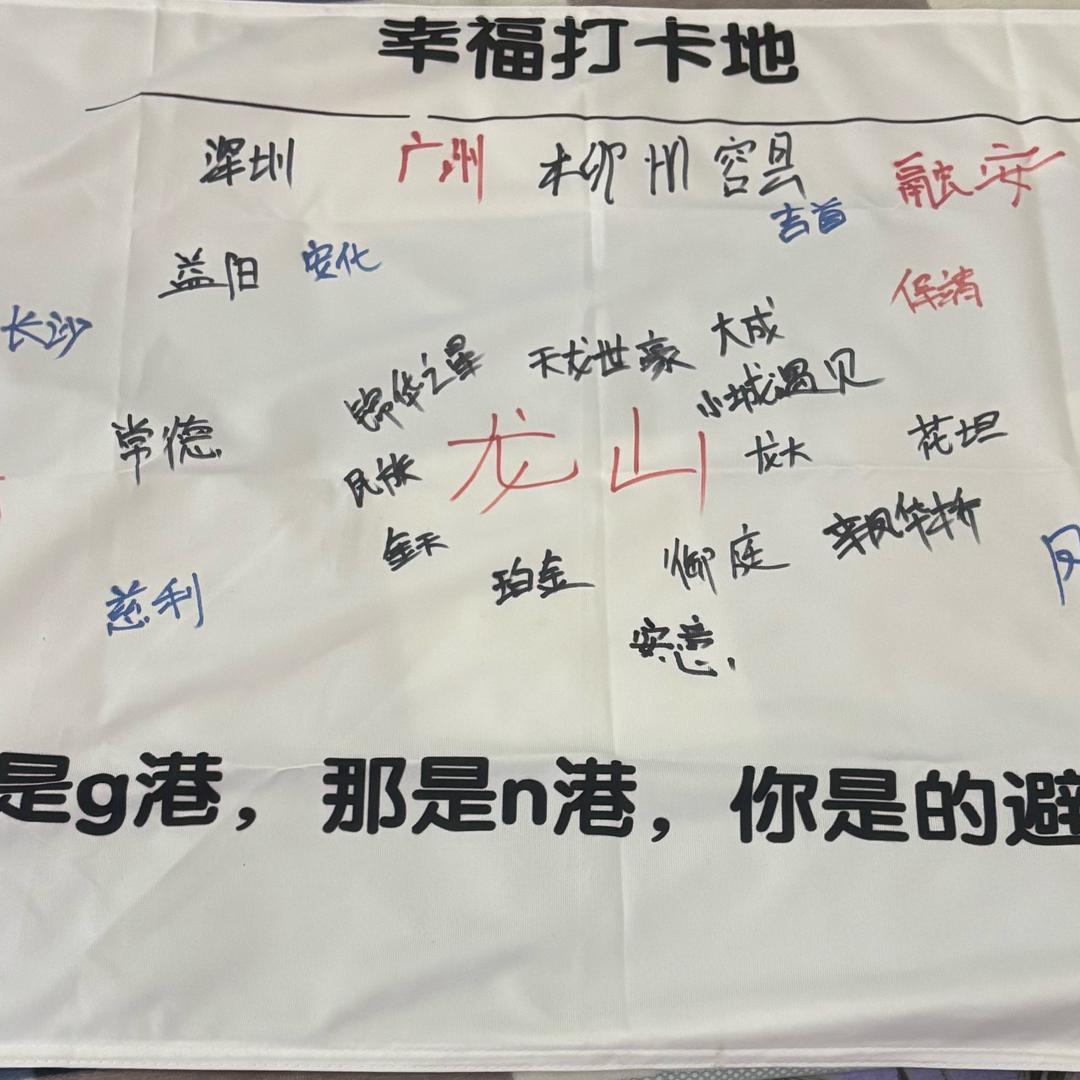 幸福打卡地
深圳 广州 柳州 容县 融安
吉首
益阳 安化
保靖
长沙
锦华之星 天龙世豪 大成
小城遇见
常德 龙山 龙大 花坦
民族
金天 珀金 御庭
慈利
安意.
是g港，那是n港，你是的避